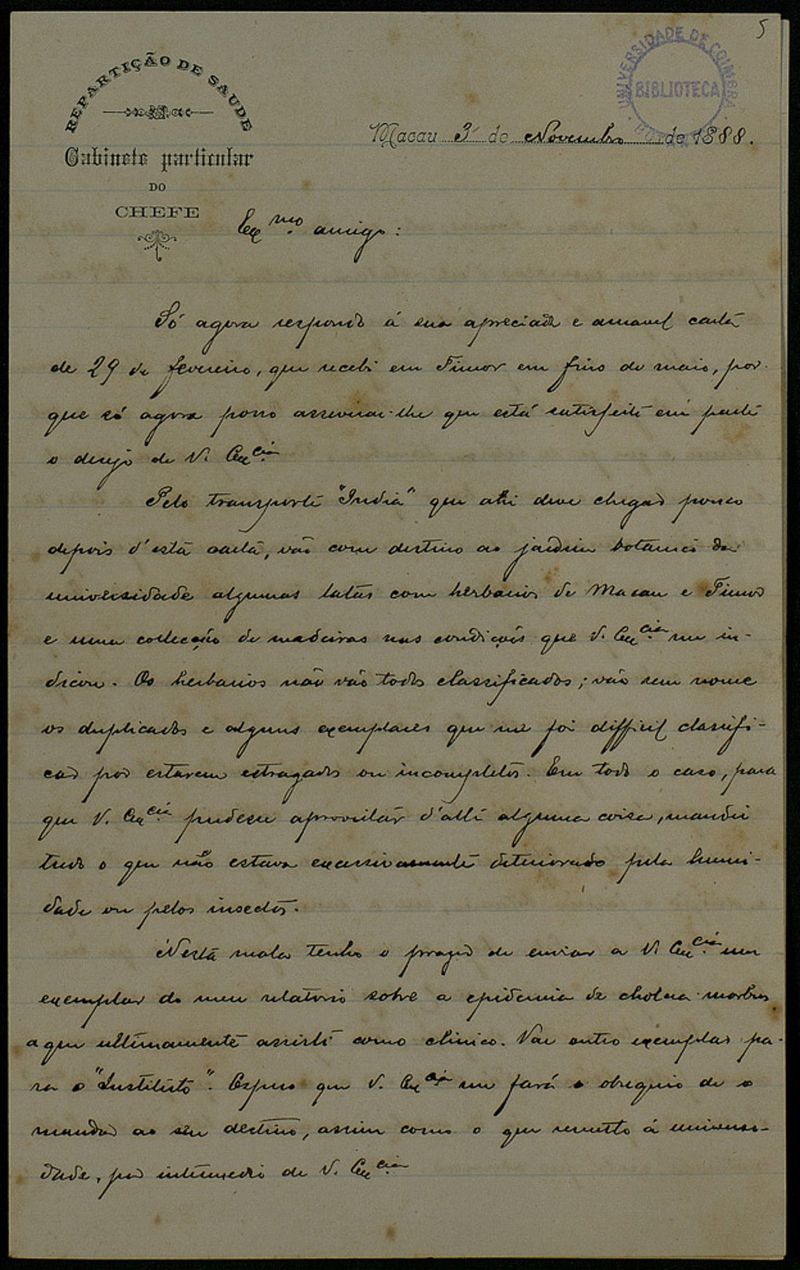 5
UNIVERSIDADE DE COIMBRA
BIBLIOTECA
REPARTIÇÃO DE SAUDE
Gabinete particular
DO
CHEFE
Macau 3 de Novembro de 1888.
Exmo amigo:
Só agora respondo á sua apreciada e amavel carta
de 29 de fevereiro, que recebi em Timor em fins de maio, por-
que só agora posso asseverar-lhe que está satisfeito em parte
o desejo de V. Excia
Pelo transporte "India" que ahi deve chegar pouco
depois d'esta carta, vão com destino ao jardim botanico da
universidade algumas latas com herbarios de Macau e Timor
e uma collecção de madeiras nas condições que V. Excia me in-
dicou. Os herbarios não vão todos classificados; vão sem nome
os duplicados e alguns exemplares que me foi difficil classifi-
car por estarem estragados ou incompletos. Em todo o caso, para
que V. Excia pudesse aproveitar d'alli alguma coisa, mandei
tudo o que não estava excessivamente deteriorado pela humi-
dade ou pelos insectos.
Nesta mala tenho o prazer de enviar a V. Excia um
exemplar do meu relatorio sobre a epidemia de cholera-morbus
a que ultimamente assisti como clinico. Vae outro exemplar pa-
ra o "Instituto". Espero que V. Excia me fará o obsequio de o
mandar ao seu destino, assim como o que remetto á universi-
dade, por intermedio de V. Excia